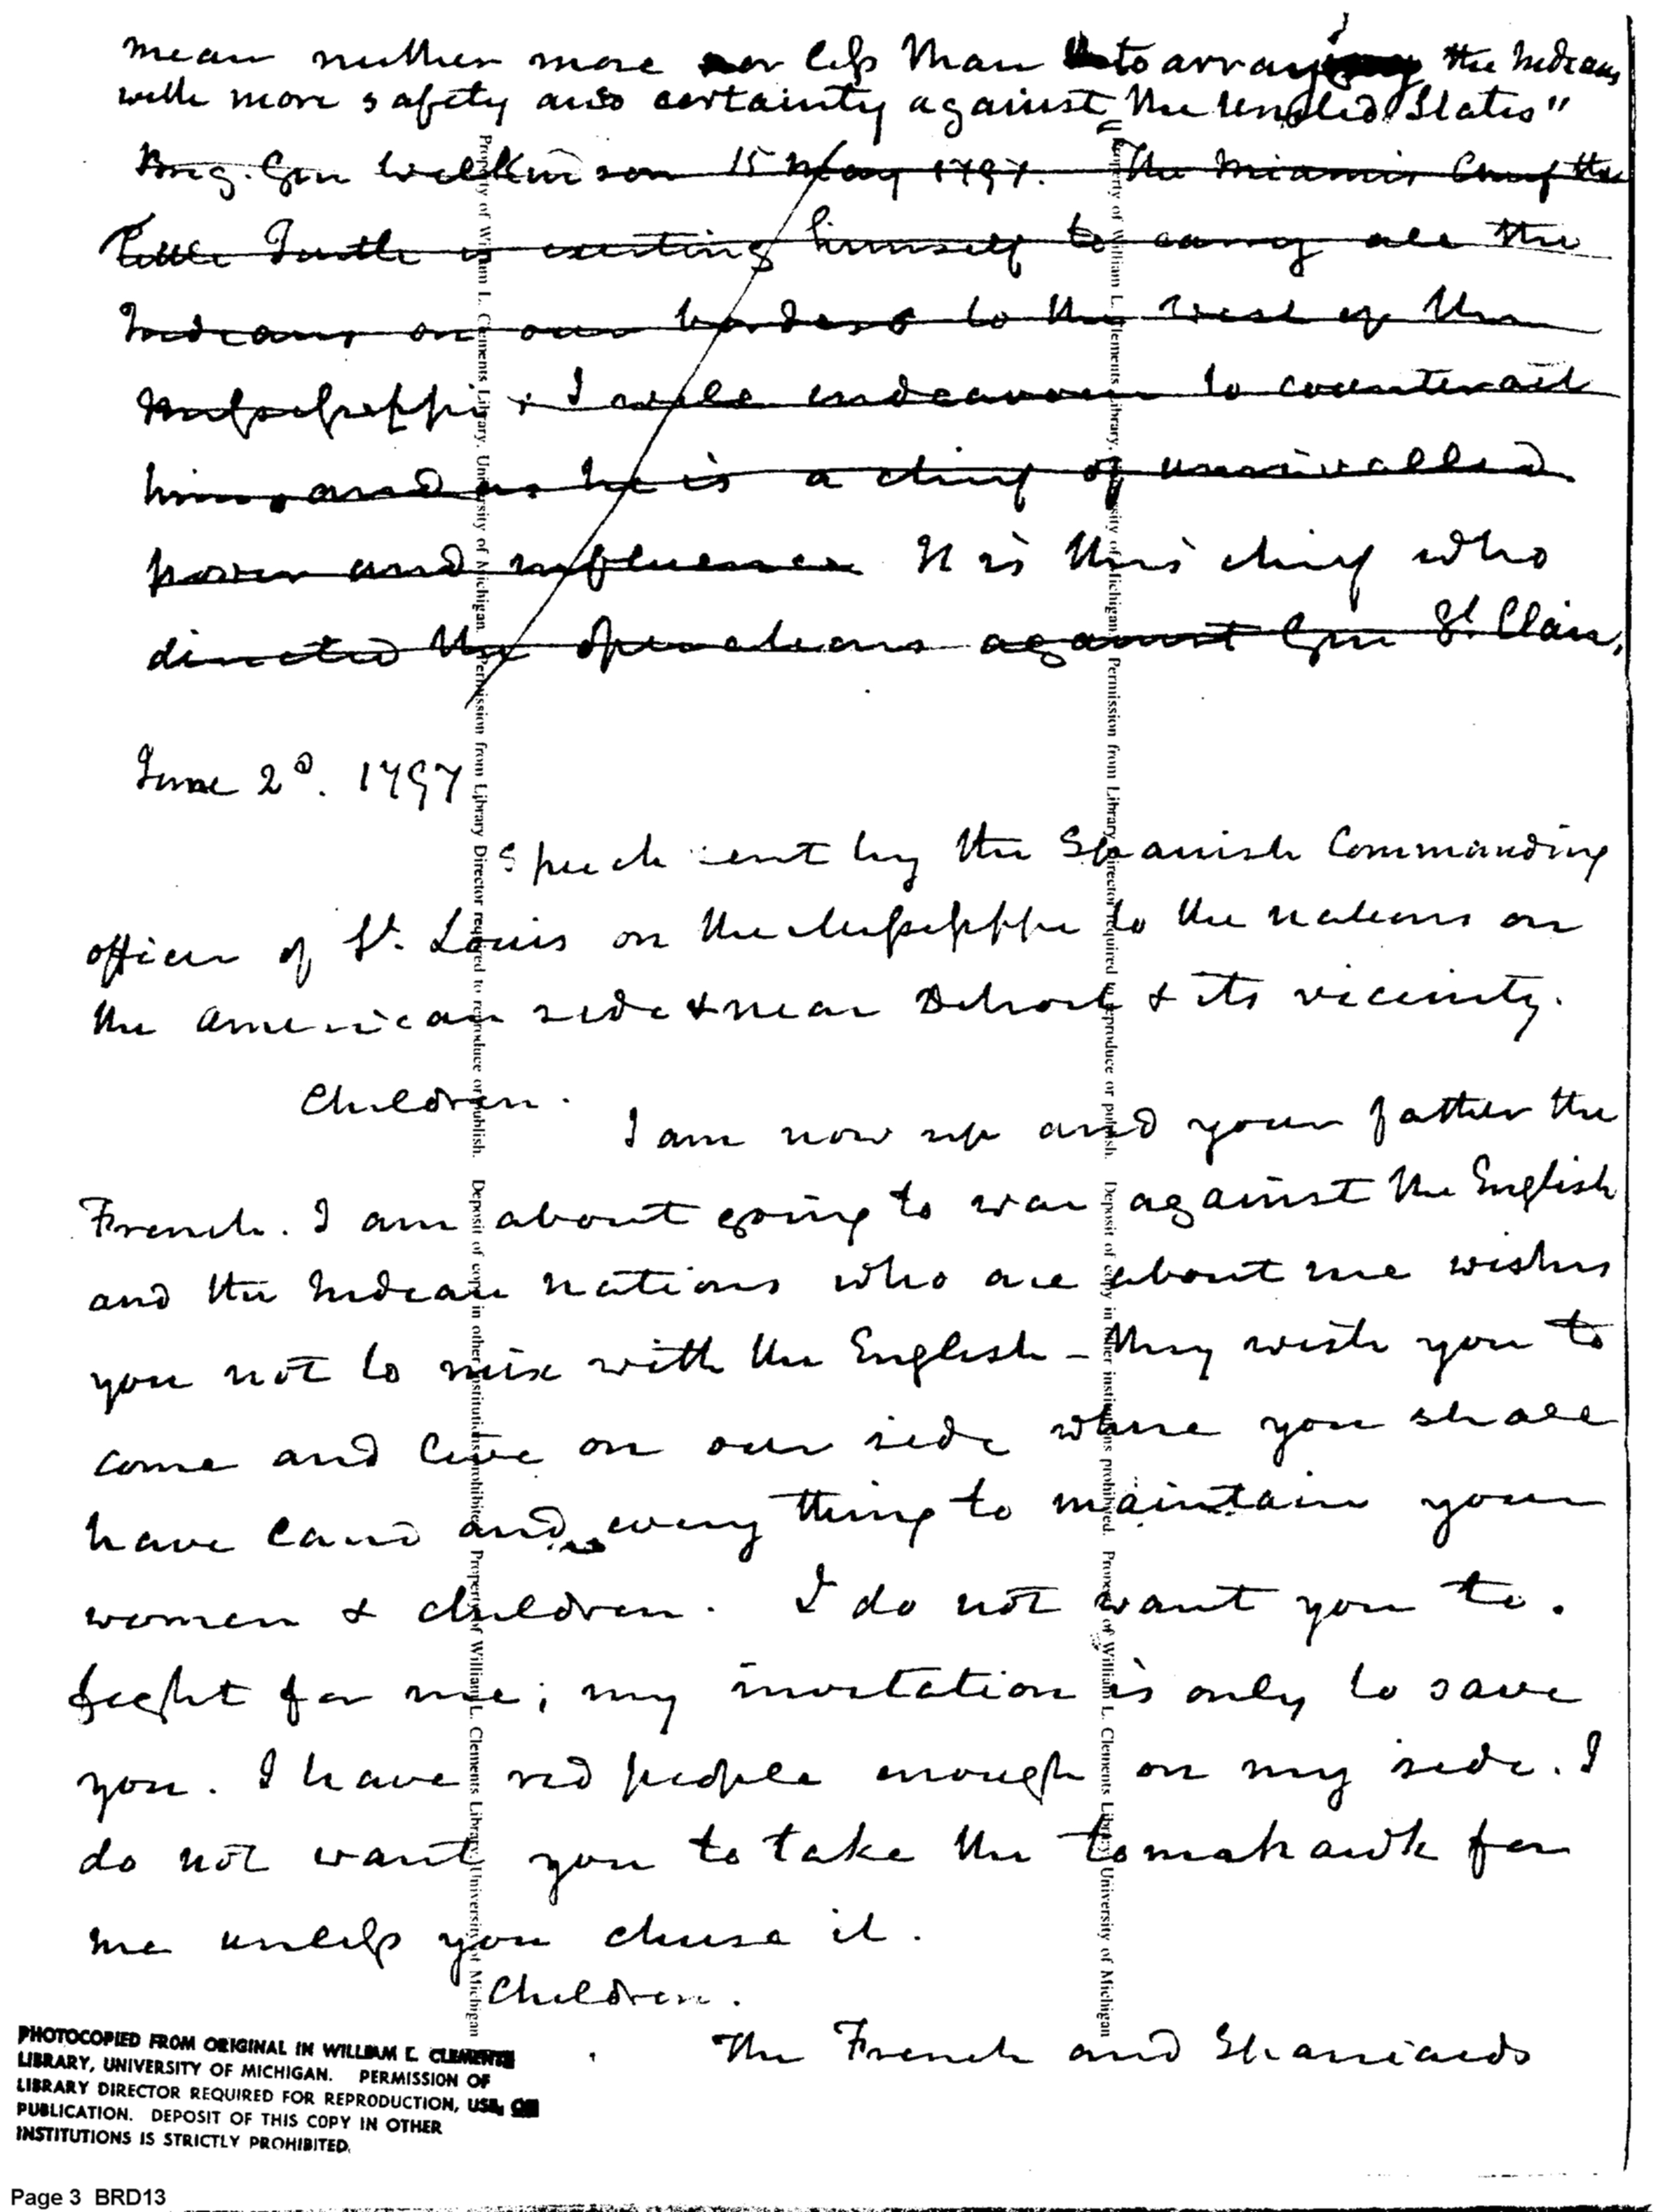 mean neither more nor less than to array the Indians
with more safety and certainty against "the United States"
Brig. Gen Wilkinson 15 May 1797. The Miamis Chief the
Little Turtle is exerting himself to carry all the
Indians on our borders to the west of the
Mississippi. I will endeavour to countervail
him, and as he is a chief of unrivalled
power and influence It is this chief who
directed the operations against Gen St. Clair.
June 2d. 1797
Speech sent by the Spanish Commanding
officer of St. Louis on the Mississippi to the nations on
the American side & near Detroit & its vicinity.
Children.
I am now up and your father the
French. I am about going to war against the English
and the Indian nations who are about me wishes
you not to mix with the English – they wish you to
come and live on our side where you shall
have land and every thing to maintain your
women & children. I do not want you to.
fight for me; my invitation is only to save
you. I have red people enough on my side. I
do not want you to take the tomahawk for
me unless you chuse it.
Children.
The French and Spaniards
Property of William L. Clements Library, University of Michigan. Permission from Library Director required to reproduce or publish. Deposit of copy in other institutions prohibited. Property of William L. Clements Library, University of Michigan
Property of William L. Clements Library, University of Michigan. Permission from Library Director required to reproduce or publish. Deposit of copy in other institutions prohibited. Property of William L. Clements Library, University of Michigan
PHOTOCOPIED FROM ORIGINAL IN WILLIAM L. CLEMENTS
LIBRARY, UNIVERSITY OF MICHIGAN. PERMISSION OF
LIBRARY DIRECTOR REQUIRED FOR REPRODUCTION, USE, OR
PUBLICATION. DEPOSIT OF THIS COPY IN OTHER
INSTITUTIONS IS STRICTLY PROHIBITED.
Page 3 BRD13